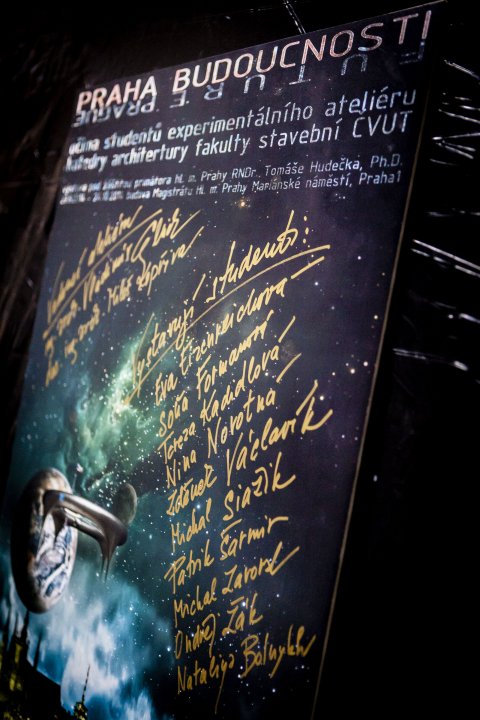 PRAHA BUDOUCNOSTI
FUTURE PRAGUE
studentů experimentálního ateliéru
katedry architektury fakulty stavební ČVUT
primátora hl. m. Prahy RNDr. Tomáše Hudečka, Ph.D.
budova Magistrátu hl. m. Prahy Mariánské náměstí, Praha1
Vedoucí ateliéru
Vladimír
Miloš
Vystavují studenti:
Eva Eizenreichová
Soňa Formanová
Tereza Kadidlová
Nina Novotná
Zdeněk Václavík
Michal Siažik
Patrik Šarmir
Michal
Ondřej Žák
Nataliya